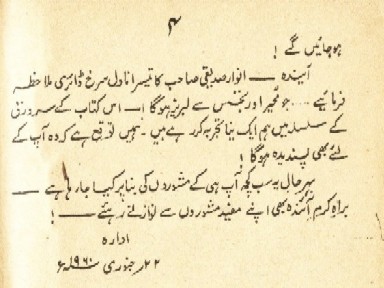 ۴
ہوجائیں گے !
آیندہ — انوار صدیقی صاحب کا تیسرا ناول سرخ ڈائری ملاحظہ
فرمائیے .... جو تحیر اور تجسس سے لبریز ہوگا ! — اس کتاب کے سرورق
کے سلسلہ میں ہم ایک نیا تجربہ کر رہے ہیں ۔ ہمیں توقع ہے کہ وہ آپ کے
لئے بھی پسندیدہ ہوگا !
بہر حال یہ سب کچھ آپ ہی کے مشوروں کی بنا پر کیا جا رہا ہے —
براہ کرم آئندہ بھی اپنے مفید مشوروں سے نوازتے رہئے — !
ادارہ
۲۲ر جنوری ۱۹۶۰ء